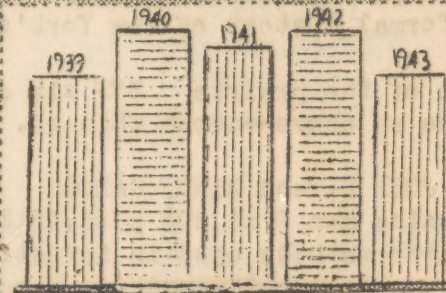 1939
1940
1941
1942
1943